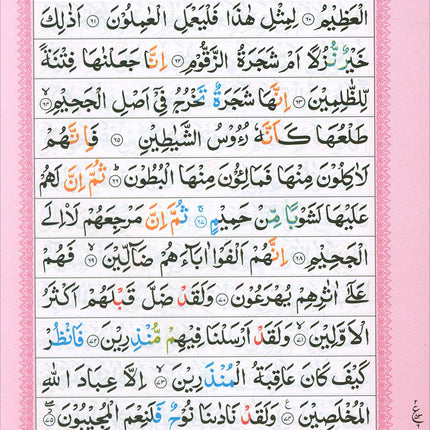 الْعَظِيْمُ ﴿٦٠﴾ لِمِثْلِ هٰذَا فَلْيَعْمَلِ الْعٰمِلُوْنَ ﴿٦١﴾ اَذٰلِكَ
خَيْرٌ نُّزُلًا اَمْ شَجَرَةُ الزَّقُّوْمِ ﴿٦٢﴾ اِنَّا جَعَلْنٰهَا فِتْنَةً
لِّلظّٰلِمِيْنَ ﴿٦٣﴾ اِنَّهَا شَجَرَةٌ تَخْرُجُ فِيْٓ اَصْلِ الْجَحِيْمِ ﴿٦٤﴾
طَلْعُهَا كَاَنَّهٗ رُءُوْسُ الشَّيٰطِيْنِ ﴿٦٥﴾ فَاِنَّهُمْ
لَاٰكِلُوْنَ مِنْهَا فَمَالِـُٔوْنَ مِنْهَا الْبُطُوْنَ ﴿٦٦﴾ ثُمَّ اِنَّ لَهُمْ
عَلَيْهَا لَشَوْبًا مِّنْ حَمِيْمٍ ﴿٦٧﴾ ثُمَّ اِنَّ مَرْجِعَهُمْ لَا۟اِلَى
الْجَحِيْمِ ﴿٦٨﴾ اِنَّهُمْ اَلْفَوْا اٰبَآءَهُمْ ضَآلِّيْنَ ﴿٦٩﴾ فَهُمْ
عَلٰٓى اٰثٰرِهِمْ يُهْرَعُوْنَ ﴿٧٠﴾ وَلَقَدْ ضَلَّ قَبْلَهُمْ اَكْثَرُ
الْاَوَّلِيْنَ ﴿٧١﴾ وَلَقَدْ اَرْسَلْنَا فِيْهِمْ مُّنْذِرِيْنَ ﴿٧٢﴾ فَانْظُرْ
كَيْفَ كَانَ عَاقِبَةُ الْمُنْذَرِيْنَ ﴿٧٣﴾ اِلَّا عِبَادَ اللّٰهِ
الْمُخْلَصِيْنَ ﴿٧٤﴾ وَلَقَدْ نَادٰىنَا نُوْحٌ فَلَنِعْمَ الْمُجِيْبُوْنَ ﴿٧٥﴾